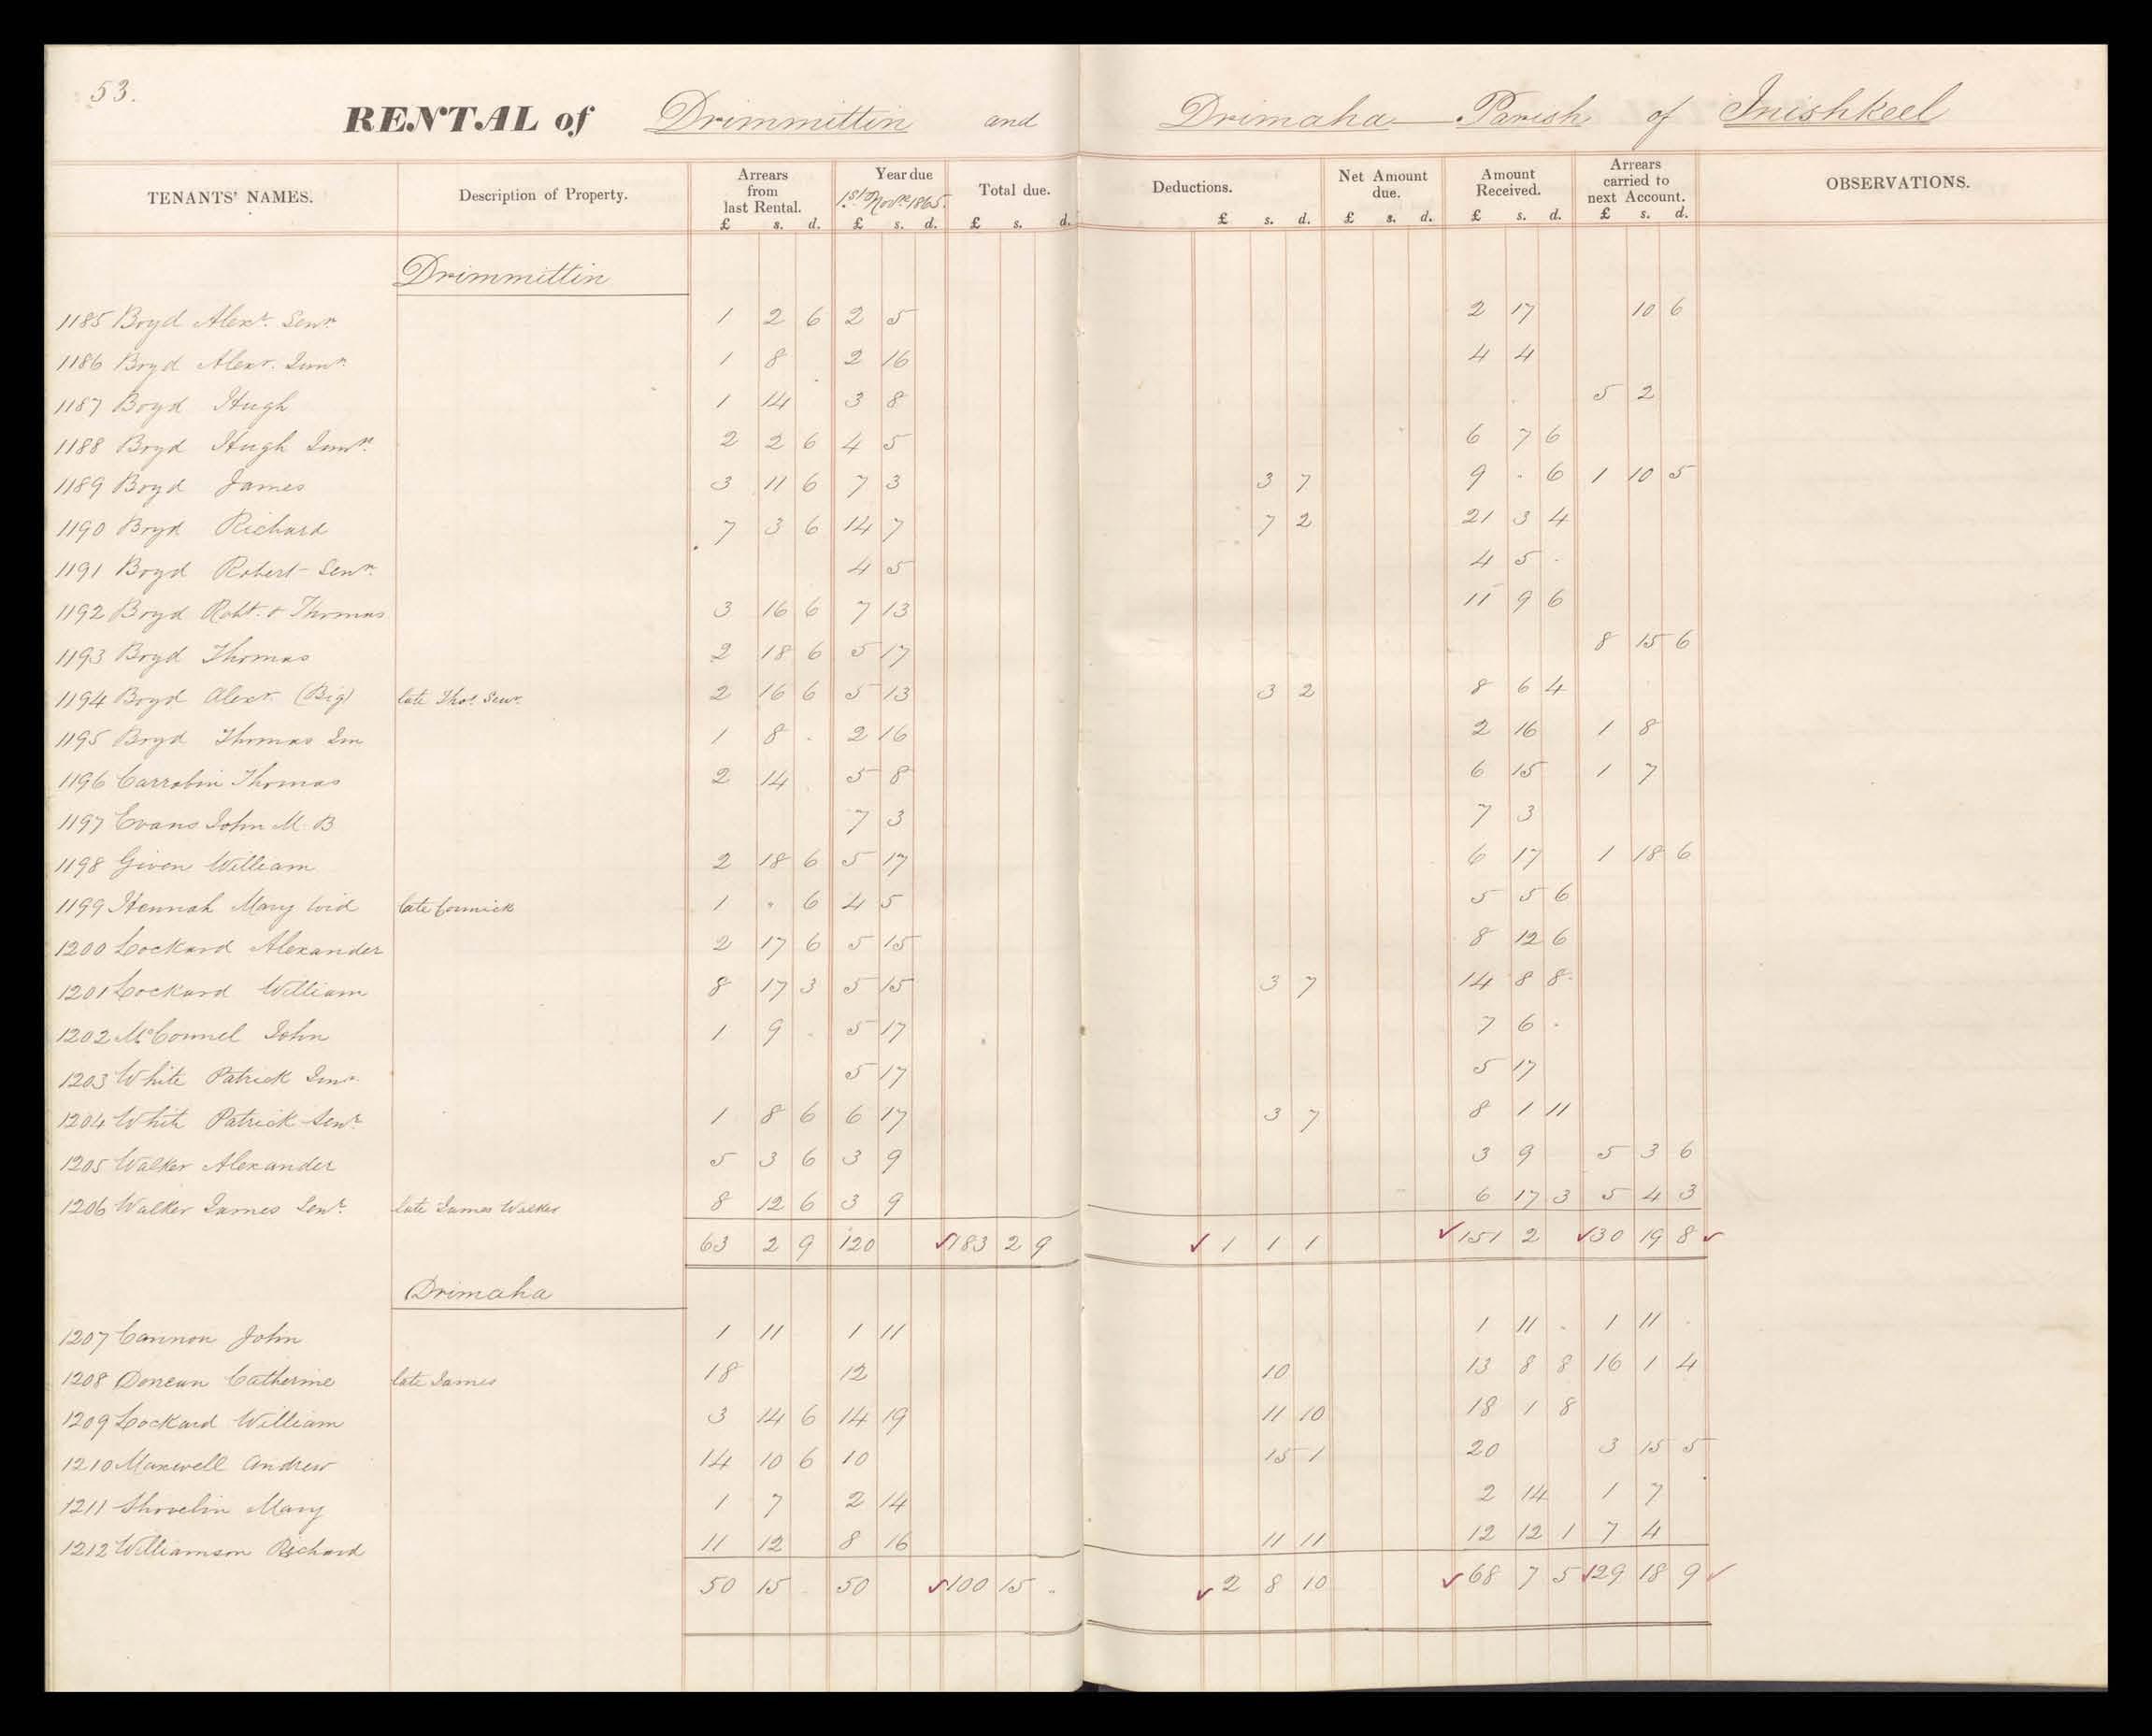 53.
RENTAL of Drimmittin and Drimaha Parish of Inishkeel
TENANTS' NAMES. Description of Property. Arrears from last Rental. £ s. d. Year due 1st Novr. 1865. £ s. d. Total due. £ s. d. Deductions. £ s. d. Net Amount due. £ s. d. Amount Received. £ s. d. Arrears carried to next Account. £ s. d. OBSERVATIONS.
Drimmittin
1185 Boyd Alexr. Senr. 1 2 6 2 5 2 17 10 6
1186 Boyd Alexr. Junr. 1 8 2 16 4 4
1187 Boyd Hugh 1 14 3 8 5 2
1188 Boyd Hugh Junr. 2 2 6 4 5 6 7 6
1189 Boyd James 3 11 6 7 3 3 7 9 . 6 1 10 5
1190 Boyd Richard 7 3 6 14 7 7 2 21 3 4
1191 Boyd Robert Senr. 4 5 4 5 .
1192 Boyd Robt. & Thomas 3 16 6 7 13 11 9 6
1193 Boyd Thomas 2 18 6 5 17 8 15 6
1194 Boyd Alexr. (Big) late Thos. Senr. 2 16 6 5 13 3 2 8 6 4
1195 Boyd Thomas Jun 1 8 . 2 16 2 16 1 8
1196 Carrabin Thomas 2 14 5 8 6 15 1 7
1197 Evans John M. B 7 3 7 3
1198 Given William 2 18 6 5 17 6 17 1 18 6
1199 Hennah Mary Wid late Cormick 1 . 6 4 5 5 5 6
1200 Lockard Alexander 2 17 6 5 15 8 12 6
1201 Lockard William 8 17 3 5 15 3 7 14 8 8
1202 McConnel John 1 9 . 5 17 7 6 .
1203 White Patrick Junr. 5 17 5 17
1204 White Patrick Senr. 1 8 6 6 17 3 7 8 1 11
1205 Walker Alexander 5 3 6 3 9 3 9 5 3 6
1206 Walker James Senr. late James Walker 8 12 6 3 9 6 17 3 5 4 3
63 2 9 120 183 2 9 1 1 1 151 2 30 19 8
Drimaha
1207 Cannon John 1 11 1 11 1 11 . 1 11 .
1208 Doncan Catherine late James 18 12 10 13 8 8 16 1 4
1209 Lockard William 3 14 6 14 19 11 10 18 1 8
1210 Maxwell Andrew 14 10 6 10 15 1 20 3 15 5
1211 Shovelin Mary 1 7 2 14 2 14 1 7
1212 Williamson Richard 11 12 8 16 11 11 12 12 1 7 4
50 15 50 100 15 . 2 8 10 68 7 5 29 18 9